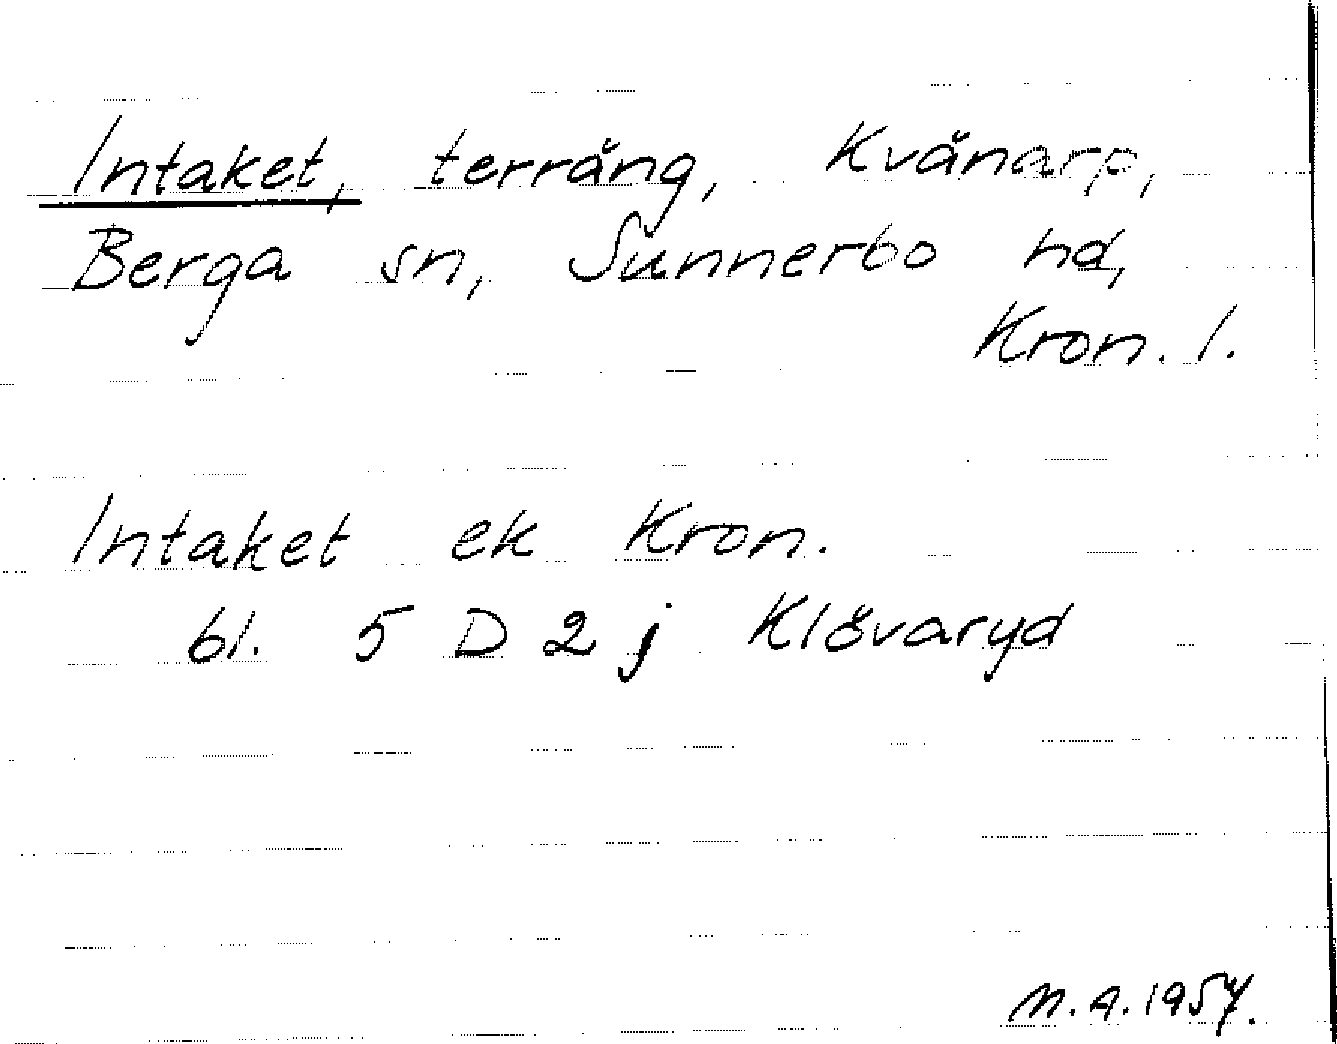 Intaket, terräng, Kvänarp,
Berga sn, Sunnerbo hd,
Kron. l.
Intaket ek Kron.
bl. 5 D 2 j Klövaryd
M.A. 1957.